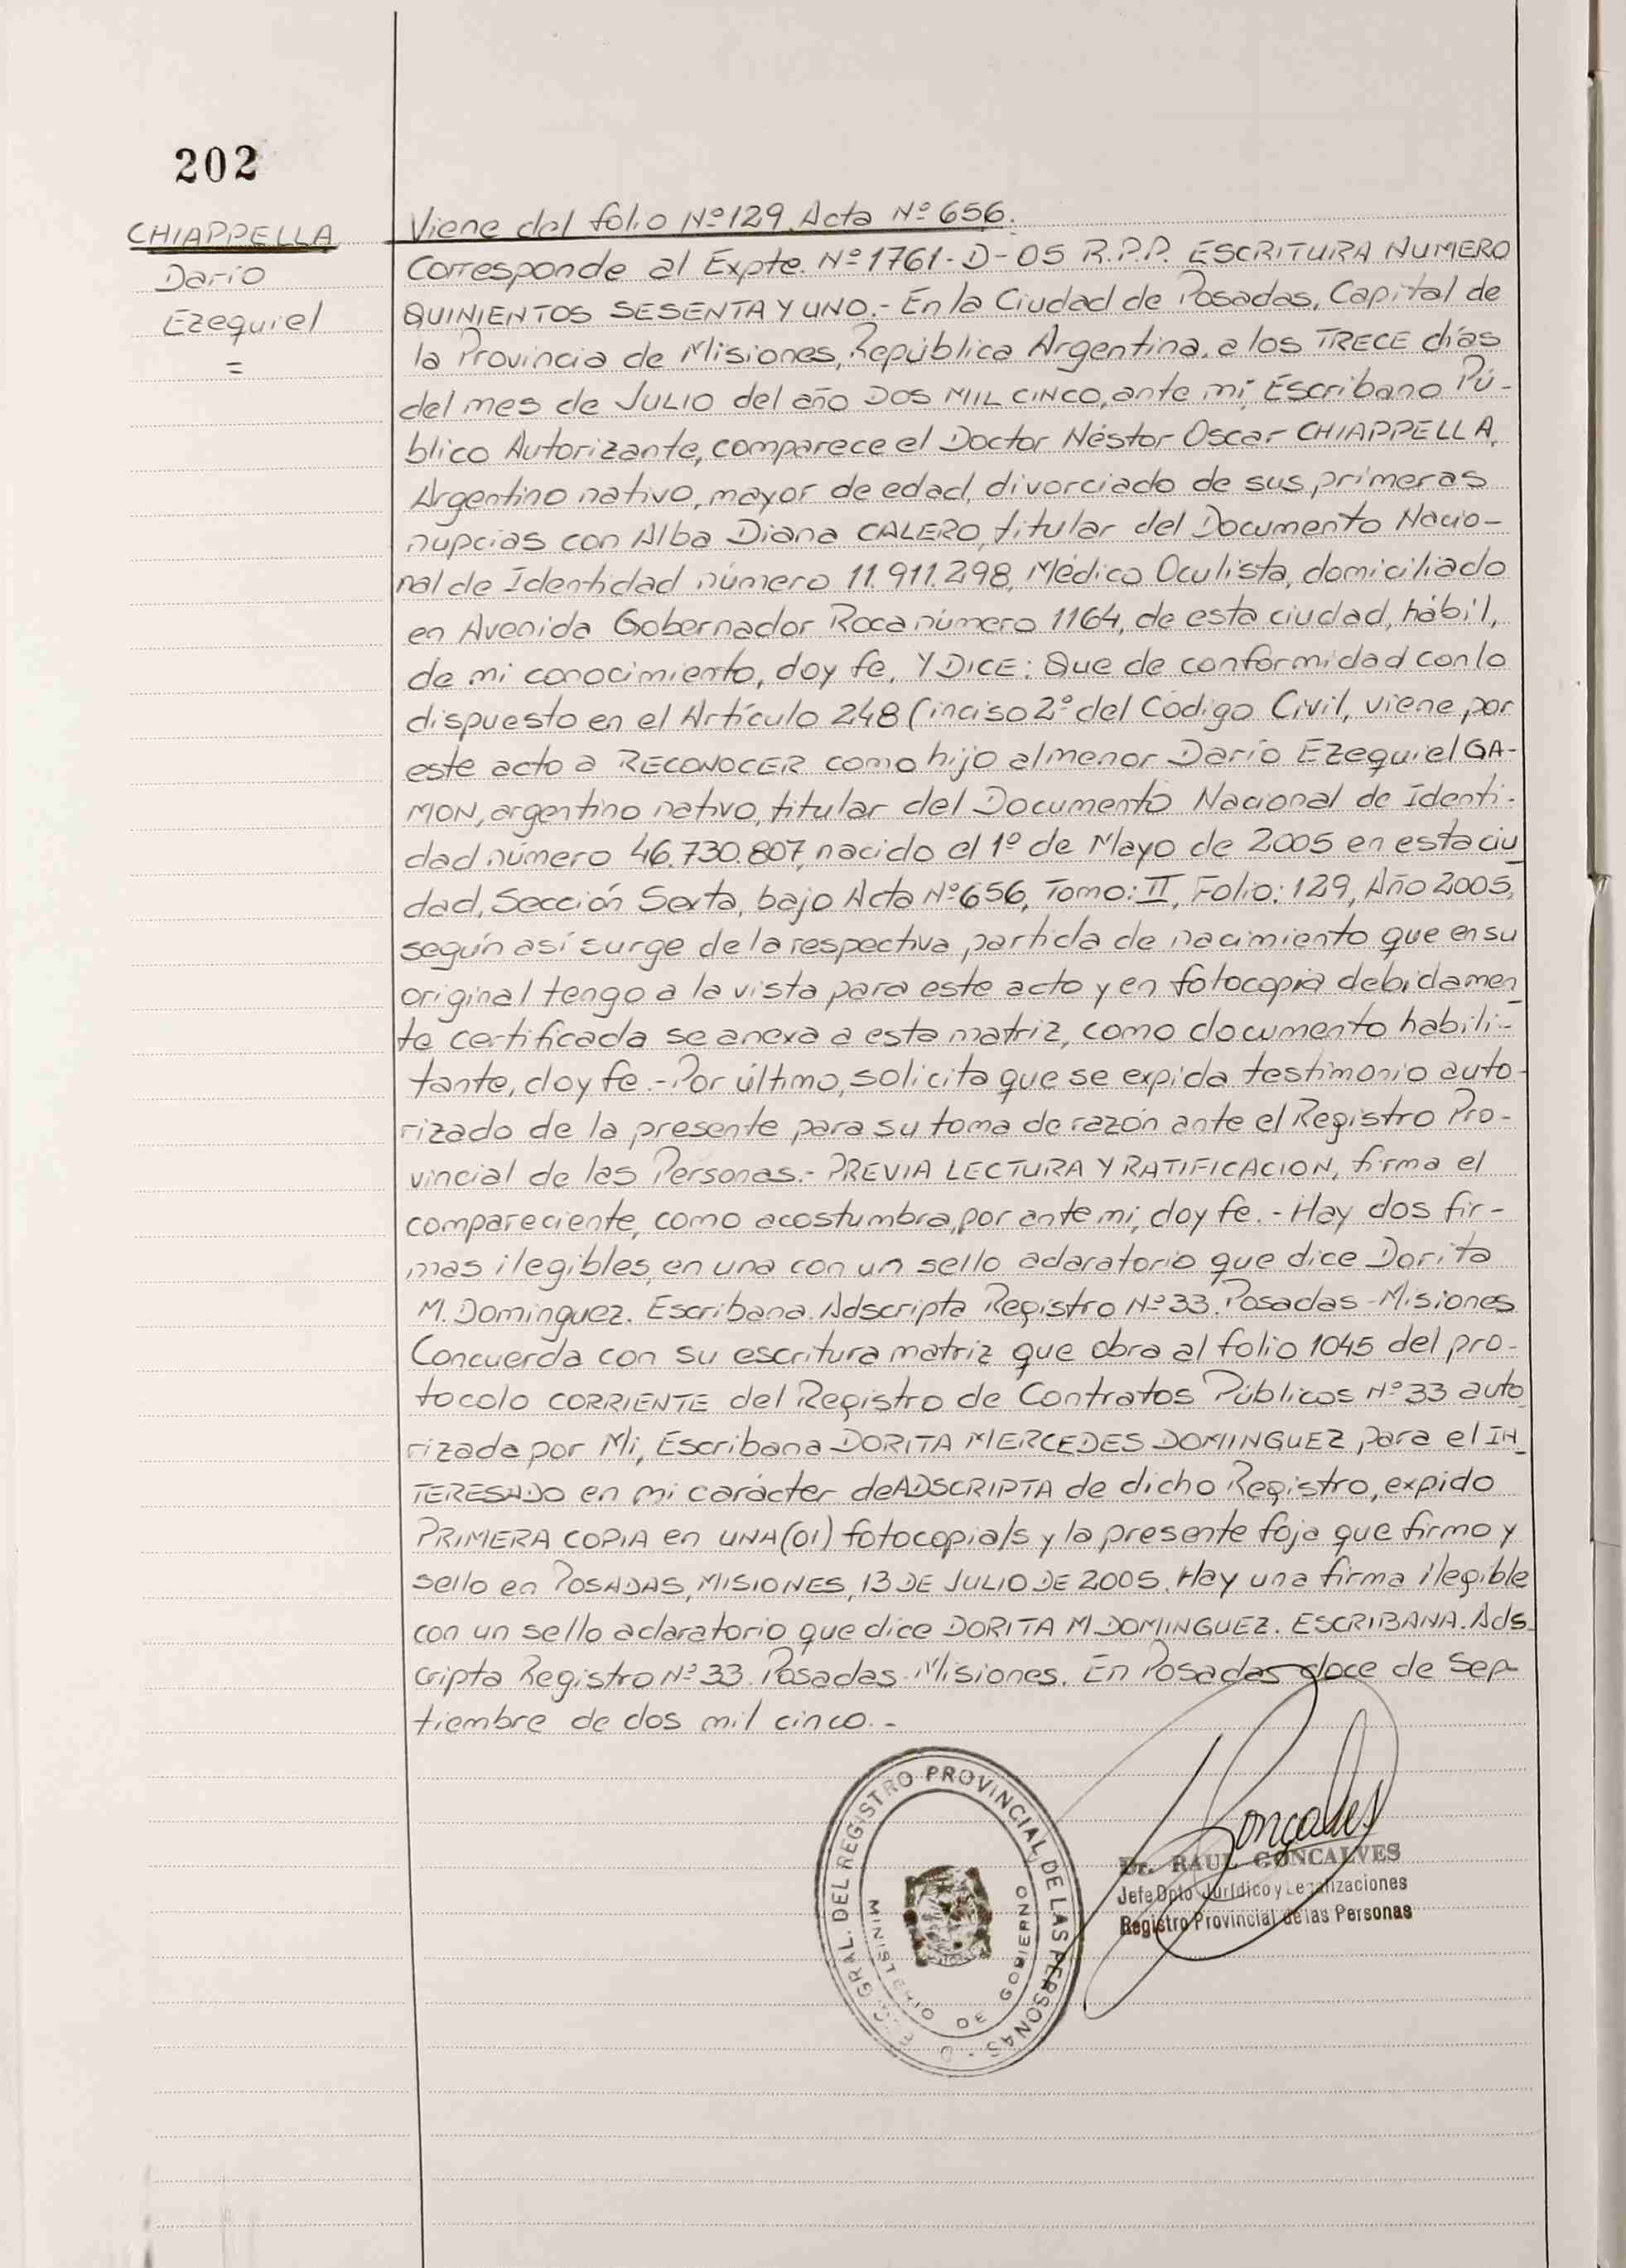 202
CHIAPPELLA
Darío
Ezequiel
=
Viene del folio Nº129. Acta Nº 656.
Corresponde al Expte. Nº1761-D-05 R.P.P. ESCRITURA NUMERO
QUINIENTOS SESENTA Y UNO.- En la Ciudad de Posadas, Capital de
la Provincia de Misiones, República Argentina, a los TRECE días
del mes de JULIO del año DOS MIL CINCO, ante mi, Escribano Pú-
blico Autorizante, comparece el Doctor Néstor Oscar CHIAPPELLA,
Argentino nativo, mayor de edad, divorciado de sus primeras
nupcias con Alba Diana CALERO, titular del Documento Nacio-
nal de Identidad número 11.911.298, Médico Oculista, domiciliado
en Avenida Gobernador Roca número 1164, de esta ciudad, hábil,
de mi conocimiento, doy fe, Y DICE: Que de conformidad con lo
dispuesto en el Artículo 248 (inciso 2º del Código Civil, viene por
este acto a RECONOCER como hijo al menor Darío Ezequiel GA-
MON, argentino nativo, titular del Documento Nacional de Identi-
dad número 46.730.807, nacido el 1º de Mayo de 2005 en esta ciu
dad, Sección Sexta, bajo Acta Nº656, Tomo: II, Folio: 129, Año 2005,
según así surge de la respectiva partida de nacimiento que en su
original tengo a la vista para este acto y en fotocopia debidamen
te certificada se anexa a esta matriz, como documento habili-
tante, doy fe.- Por último, solicita que se expida testimonio auto-
rizado de la presente para su toma de razón ante el Registro Pro-
vincial de las Personas.- PREVIA LECTURA Y RATIFICACION, firma el
compareciente, como acostumbra, por ante mi, doy fe.- Hay dos fir-
mas ilegibles, en una con un sello aclaratorio que dice Dorita
M. Dominguez. Escribana. Adscripta Registro Nº33. Posadas-Misiones
Concuerda con su escritura matriz que obra al folio 1045 del pro-
tocolo CORRIENTE del Registro de Contratos Públicos Nº33 auto
rizada por Mi, Escribana DORITA MERCEDES DOMINGUEZ para el IN
TERESADO en mi carácter de ADSCRIPTA de dicho Registro, expido
PRIMERA COPIA en UNA(01) fotocopia/s y la presente foja que firmo y
sello en POSADAS, MISIONES, 13 DE JULIO DE 2005. Hay una firma ilegible
con un sello aclaratorio que dice DORITA M. DOMINGUEZ. ESCRIBANA. Ads
cripta Registro Nº33. Posadas-Misiones. En Posadas doce de Sep-
tiembre de dos mil cinco.-
GRAL. DEL REGISTRO PROVINCIAL DE LAS PERSONAS
MINISTERIO DE GOBIERNO
Gonçalves
Dr. RAUL GONCALVES
Jefe Dpto Jurídico y Legalizaciones
Registro Provincial de las Personas